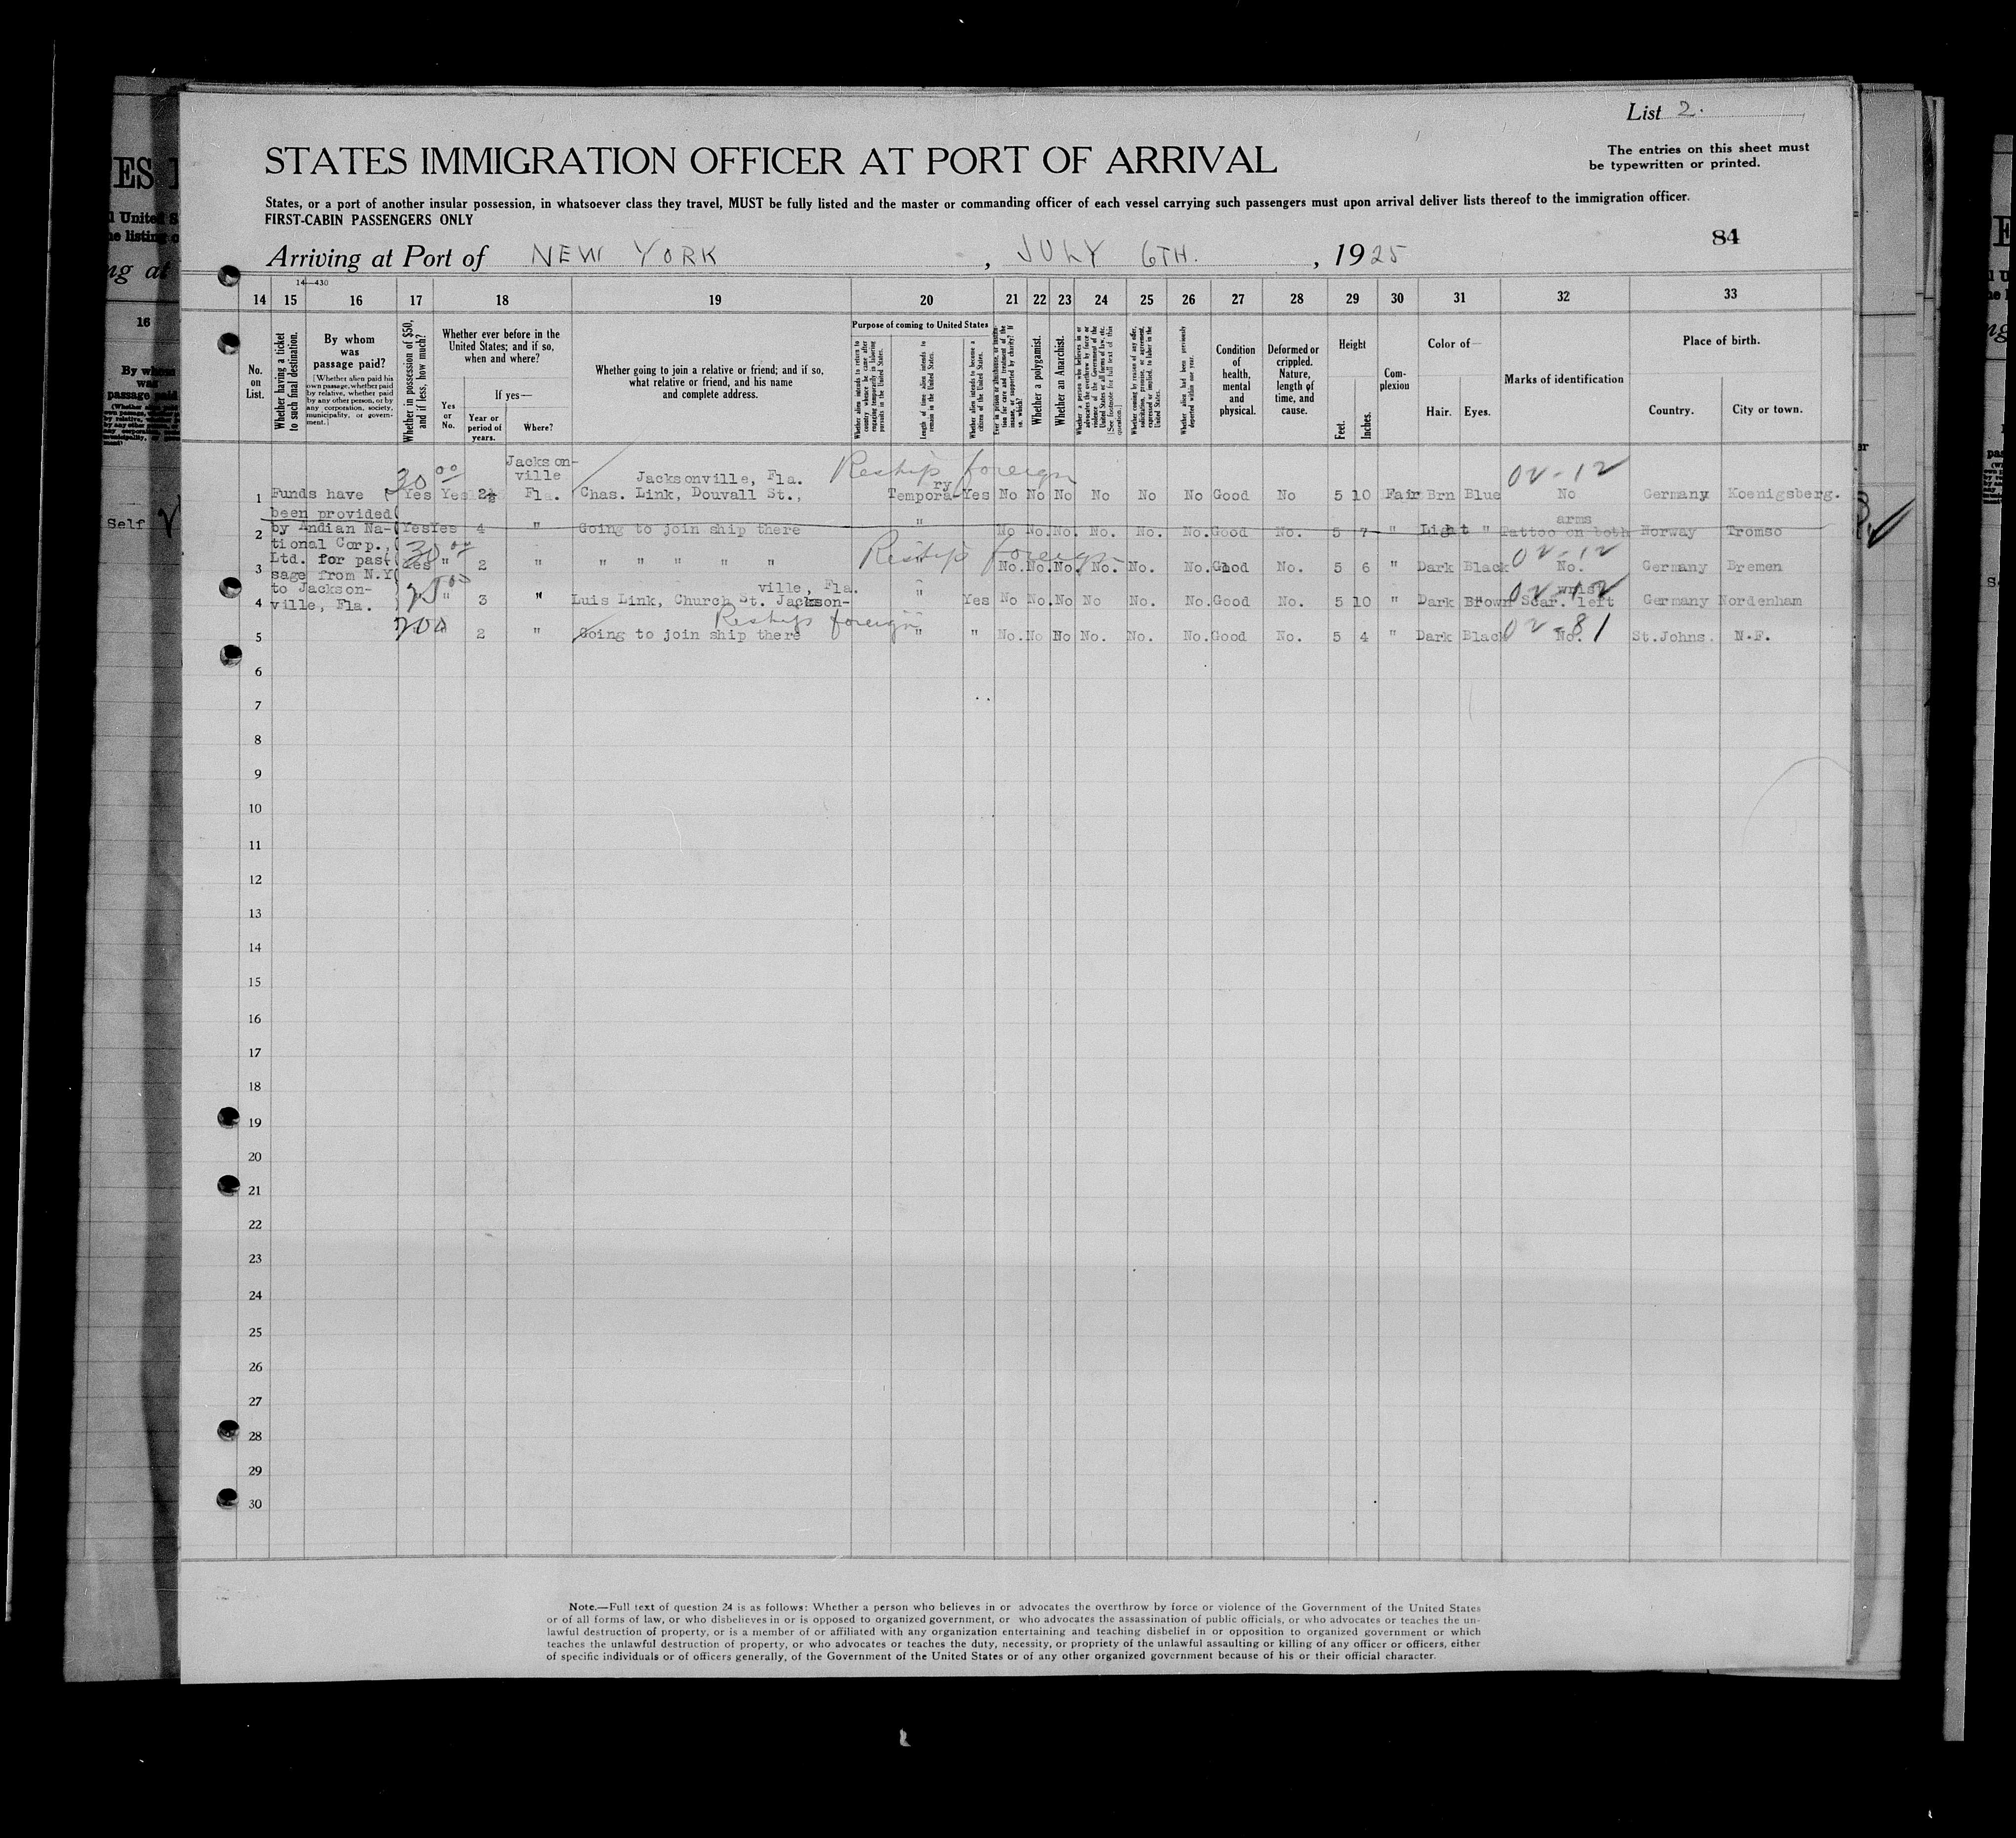 List 2.
STATES IMMIGRATION OFFICER AT PORT OF ARRIVAL
The entries on this sheet must
be typewritten or printed.
States, or a port of another insular possession, in whatsoever class they travel, MUST be fully listed and the master or commanding officer of each vessel carrying such passengers must upon arrival deliver lists thereof to the immigration officer.
FIRST-CABIN PASSENGERS ONLY
84
Arriving at Port of NEW YORK, JULY 6TH., 1925
14—430
14 15 16 17 18 19 20 21 22 23 24 25 26 27 28 29 30 31 32 33
No. on List.
Whether having a ticket to such final destination.
By whom was passage paid?
[Whether alien paid his own passage, whether paid by relative, whether paid by any other person, or by any corporation, society, municipality, or government.]
Whether in possession of $50, and if less, how much?
Whether ever before in the United States; and if so, when and where?
Yes or No.
If yes—
Year or period of years.
Where?
Whether going to join a relative or friend; and if so, what relative or friend, and his name and complete address.
Purpose of coming to United States
Whether alien intends to return to country whence he came after engaging temporarily in laboring pursuits in the United States.
Length of time alien intends to remain in the United States.
Whether alien intends to become a citizen of the United States.
Whether a polygamist.
Whether an Anarchist.
Whether coming by reason of any offer, solicitation, promise, or agreement, expressed or implied, to labor in the United States.
Whether alien had been previously deported within one year.
Condition of health, mental and physical.
Deformed or crippled. Nature, length of time, and cause.
Height
Feet. Inches.
Complexion
Color of—
Hair. Eyes.
Marks of identification
Place of birth.
Country. City or town.
Funds have
been provided
by Andian Na-
tional Corp.,
Ltd. for pas-
sage from N.Y
to Jackson-
ville, Fla.
Jackson-
ville
Jacksonville, Fla. Reship foreign 02-12
30 00
1 Yes Yes 2½ Fla. Chas. Link, Douvall St., Tempora-ry Yes No No No No No No Good No 5 10 Fair Brn Blue No Germany Koenigsberg.
arms
2 Yes Yes 4 " Going to join ship there " No No. No. No. No. No. Good No. 5 7 " Light " Tattoo on both Norway Tromso
30 00 Reship foreign 02-12
3 Yes " 2 " " " " " " " No. No. No. No. No. No. Good No. 5 6 " Dark Black No. Germany Bremen
ville, Fla. 02-12 wrist
4 " 3 " Luis Link, Church St. Jackson- " Yes No No. No No No. No. Good No. 5 10 " Dark Brown Scar. left Germany Nordenham
Reship foreign 02-81
5 2 " Going to join ship there " " No. No No No. No. No. Good No. 5 4 " Dark Black No. St.Johns. N.F.
6
7
8
9
10
11
12
13
14
15
16
17
18
19
20
21
22
23
24
25
26
27
28
29
30
Note.—Full text of question 24 is as follows: Whether a person who believes in or advocates the overthrow by force or violence of the Government of the United States
or of all forms of law, or who disbelieves in or is opposed to organized government, or who advocates the assassination of public officials, or who advocates or teaches the un-
lawful destruction of property, or is a member of or affiliated with any organization entertaining and teaching disbelief in or opposition to organized government or which
teaches the unlawful destruction of property, or who advocates or teaches the duty, necessity, or propriety of the unlawful assaulting or killing of any officer or officers, either
of specific individuals or of officers generally, of the Government of the United States or of any other organized government because of his or their official character.